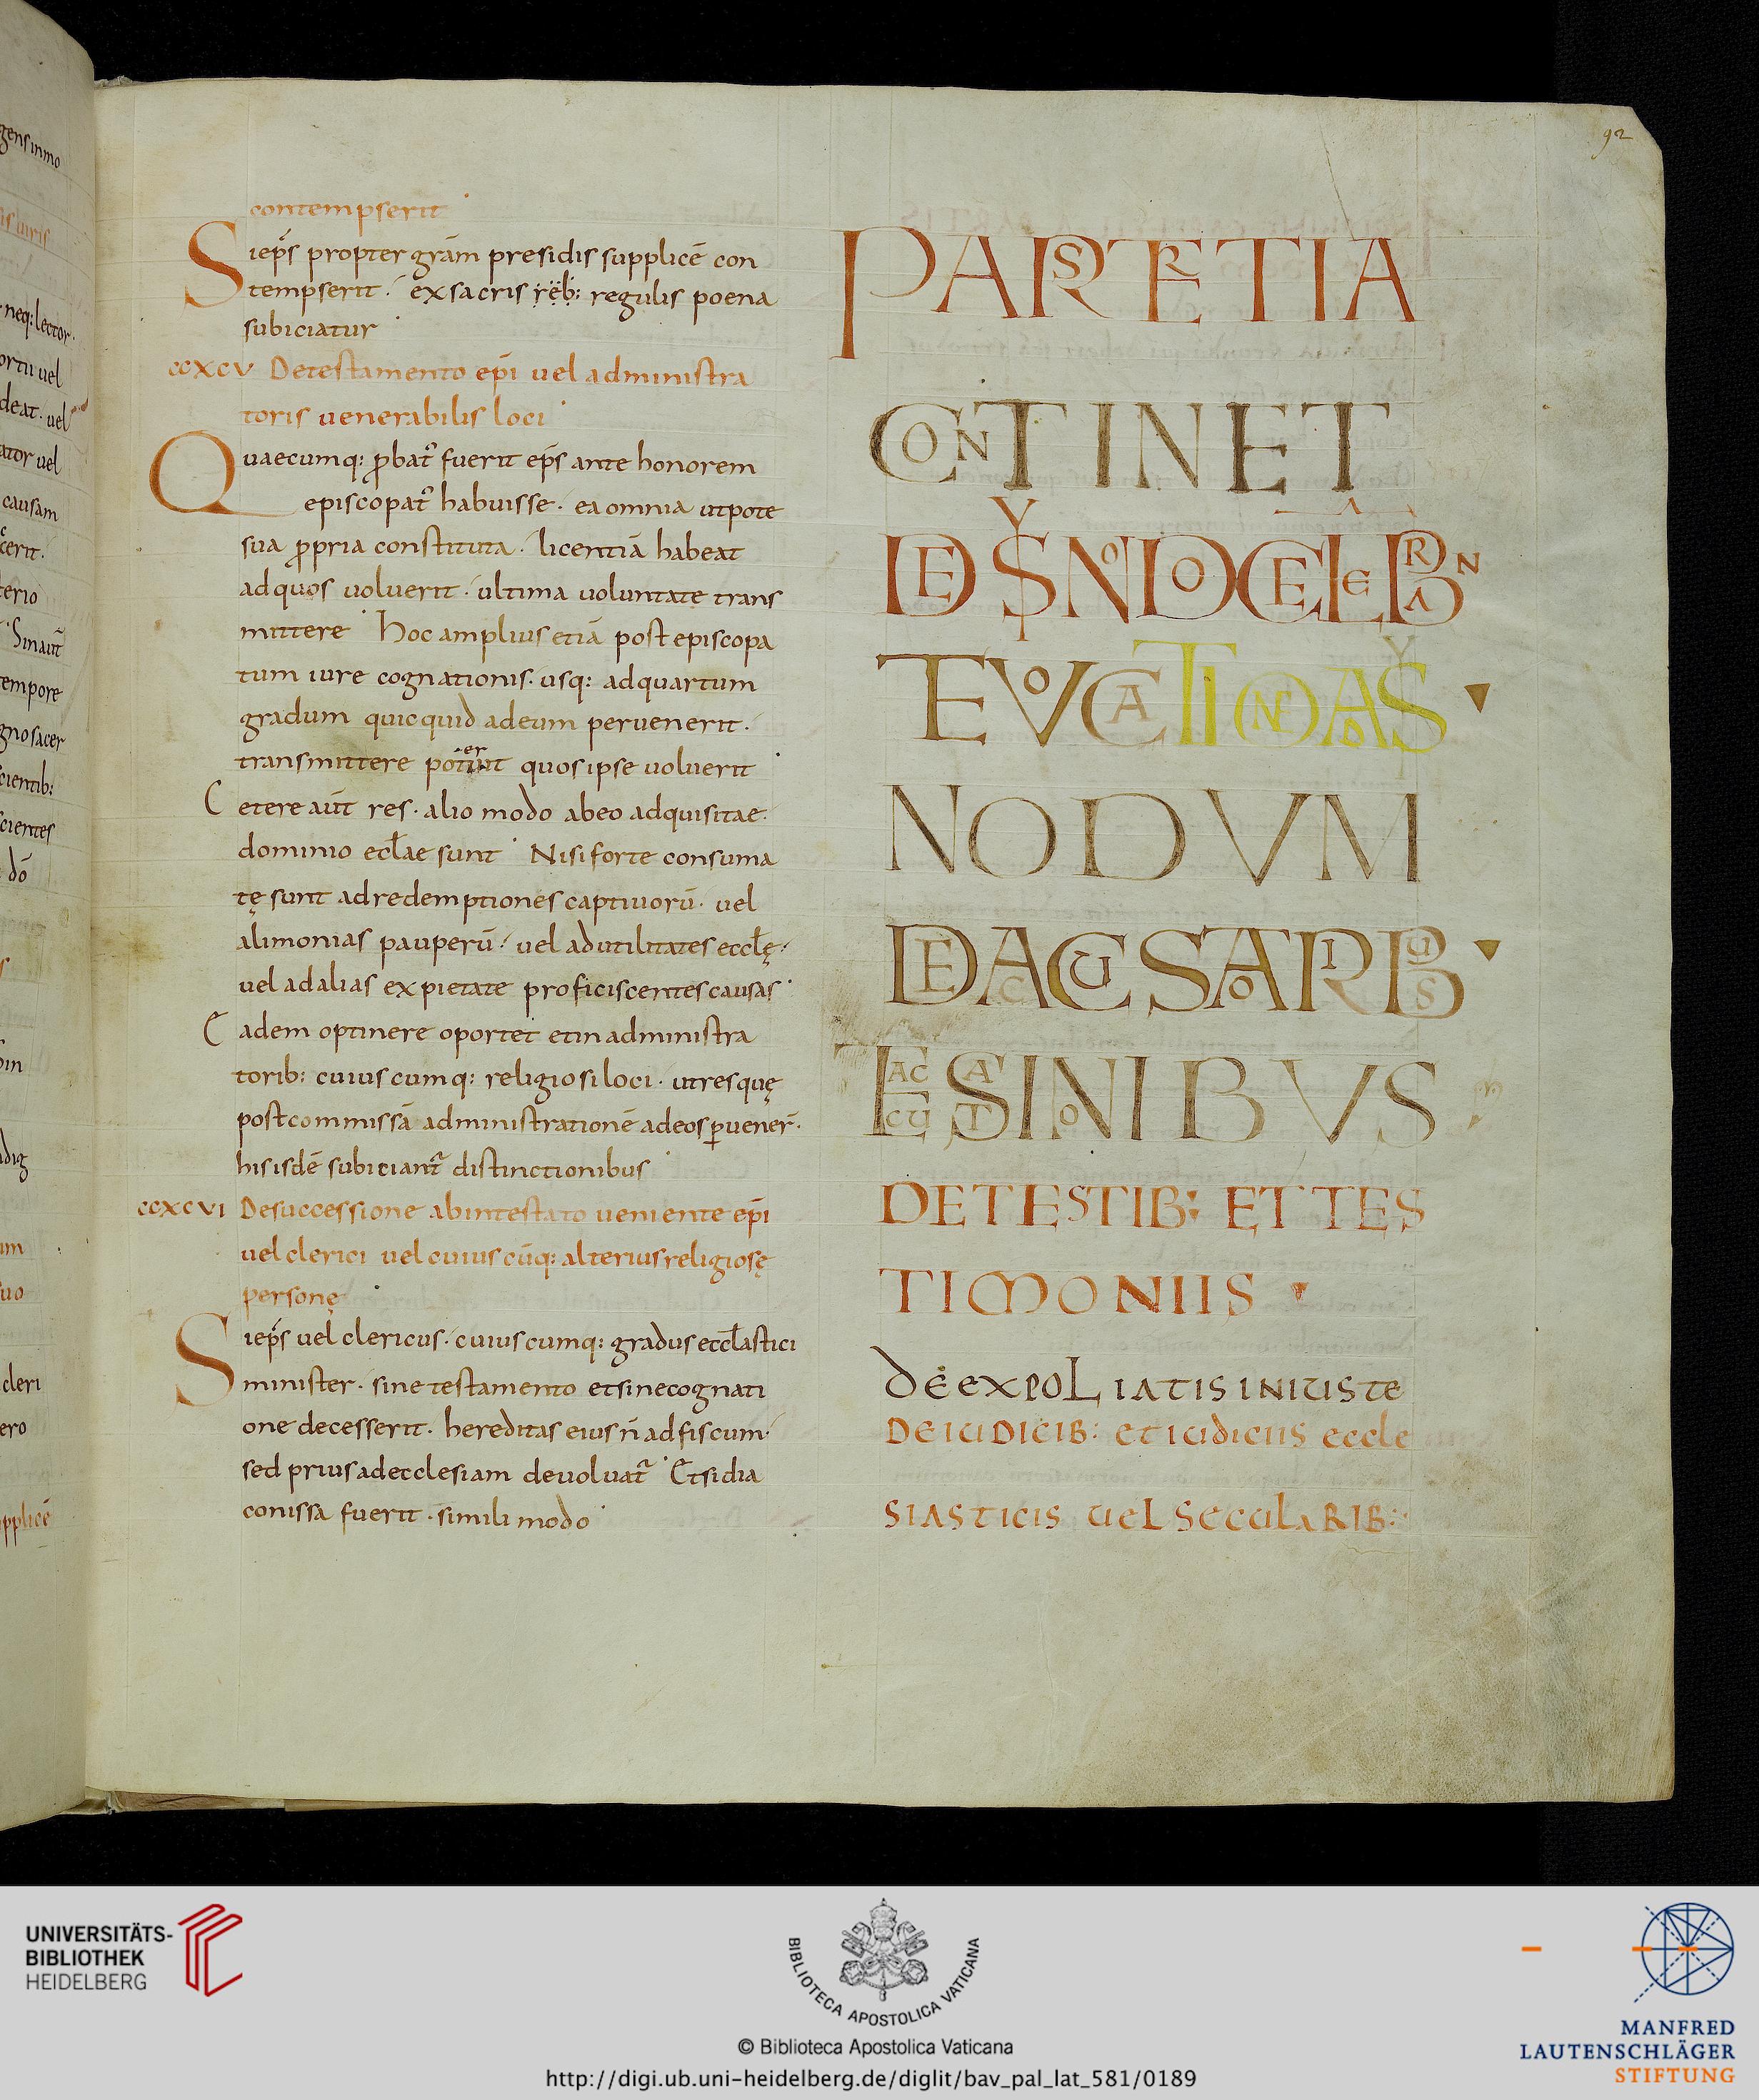 92
contempserit
Si eps̄ propter grām presidis supplicē con
tempserit· ex sacris rēb: regulis poena
subiciatur
ccxcv De testamento epī uel administra
toris uenerabilis loci
Quaecumq: ꝓbatꝰ fuerit eps̄ ante honorem
episcopatꝰ habuisse· ea omnia utpote
sua ꝓpria constituta· licentiā habeat
ad quos uoluerit· ultima uoluntate trans
mittere· Hoc amplius etiā post episcopa
tum iure cognationis· usq: ad quartum
gradum quicquid ad eum peruenerit·
transmittere quos ipse uoluerit
Cetere aūt res· alio modo ab eo adquisitae·
dominio eclae sunt· Nisi forte consuma
tę sunt ad redemptiones captiuorū· uel
alimonias pauperū· uel ad utilitates ecclę·
uel ad alias ex pietate proficiscentes causas·
Eadem optinere oportet et in administra
torib: cuiuscumq: religiosi loci· ut res quę
post commissā administrationē ad eos ꝑuener̄·
his isdē subiciant᷑ distinctionibus
ccxcvi De successione ab intestato ueniente epī
uel clerici uel cuiuscūq: alterius religiosę
personę
Si eps̄ uel clericus· cuiuscumq: gradus eccłastici
minister· sine testamento et sine cognati
one decesserit· hereditas eius n̄ ad fiscum·
sed prius ad ecclesiam deuoluat᷑· Et si dia
conissa fuerit· simili modo
PARS TERTIA
CONTINET
DE SYNODO CELEBRAN
TE VOCATIONĀ DAS Y
NODUM
DE ACCUSATORIBUS
ET ACCUSATIONIBUS
DE TESTIB: ET TES
TIMONIIS
DE EXPOLIATIS INIUSTE
DE IUDICIB: ET IUDICIIS ECCLE
SIASTICIS UEL SECULARIB:
UNIVERSITÄTS-
BIBLIOTHEK
HEIDELBERG
BIBLIOTECA APOSTOLICA VATICANA
© Biblioteca Apostolica Vaticana
http://digi.ub.uni-heidelberg.de/diglit/bav_pal_lat_581/0189
MANFRED
LAUTENSCHLÄGER
STIFTUNG